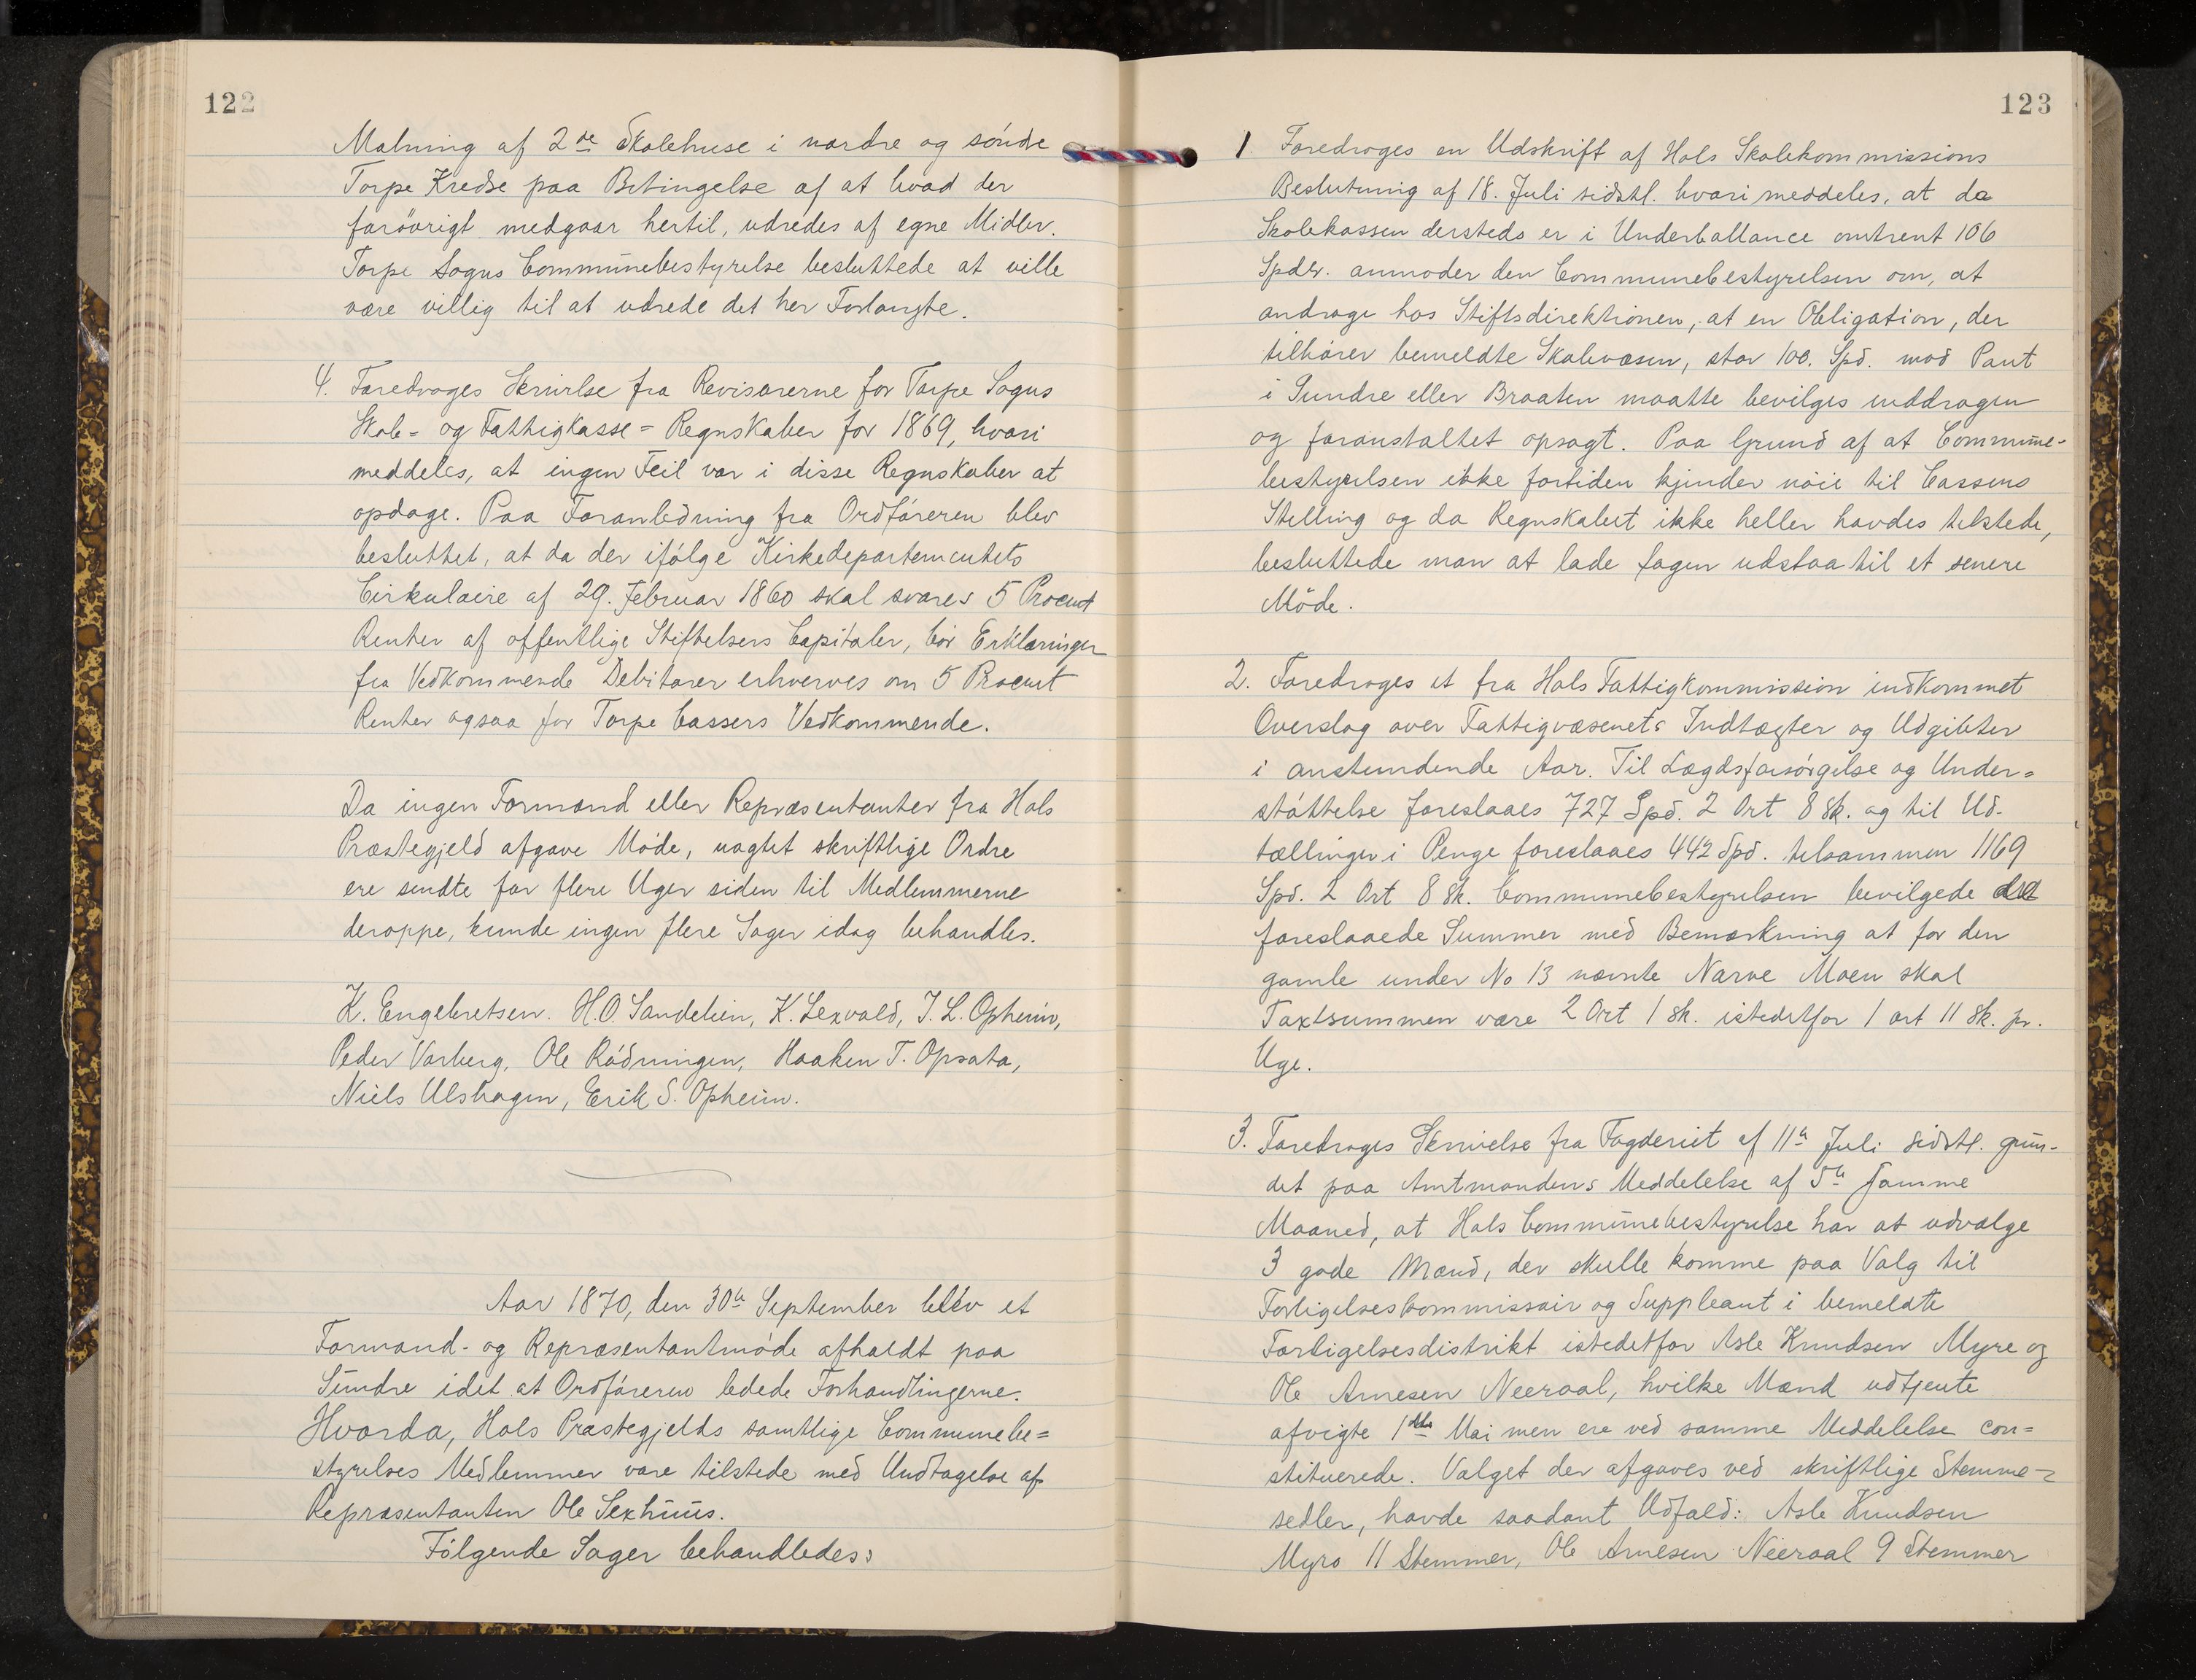 122
Malning af 2de Skolehuse i nordre og söndre
Torpe Kredse paa Betingelse af at hvad der
forövrigt medgaar hertil, udredes af egne Midler.
Torpe Sogns Communebestyrelse besluttede at ville
være villig til at udrede det her Forlangte.
4. Foredroges Skrivelse fra Revisorerne for Torpe Sogns
Skole= og Fattigkasse=Regnskaber for 1869, hvori
meddeles, at ingen Feil var i disse Regnskaber at
opdage. Paa Foranledning fra Ordföreren blev
besluttet, at da der ifölge Kirkedepartementets
Cirkulaire af 29. Februar 1860 skal svares 5 Procent
Renter af offentlige Stiftelsers Capitaler, bör Erklæringer
fra Vedkommende Debitorer erhverves om 5 Procent
Renter ogsaa for Torpe Cassers Vedkommende.
Da ingen Formænd eller Repræsentanter fra Hols
Præstegjeld afgave Möde, uagtet skriftlige Ordre
ere sendte for flere Uger siden til Medlemmerne
deroppe, kunde ingen flere Sager idag behandles.
K. Engebretsen. H.O. Sandelien, K. Lexvold, T. L. Opheim,
Peder Varberg, Ole Rödningen, Haaken T. Opsata,
Niels Ulshagen, Erik S. Opheim.
Aar 1870, den 30te September blev et
Formand- og Repræsentantmöde afholdt paa
Sundre idet at Ordföreren ledede Forhandlingerne.
Hvorda, Hols Præstegjelds samtlige Communebe=
styrelses Medlemmer vare tilstede med Undtagelse af
Repræsentanten Ole Sexhuus.
Fölgende Sager behandledes:
123
1. Foredroges en Udskrift af Hols Skolekommissions
Beslutning af 18. Juli sidstl. hvori meddeles, at da
Skolekassen dersteds er i Underballance omtrent 106
Spdlr. anmoder den Communebestyrelsen om, at
andrage hos Stiftsdirektionen, at en Obligation, der
tilhörer bemeldte Skolevæsen, stor 100. Spd. mod Pant
i Sundre eller Braaten maatte bevilges inddragen
og foranstaltet opsagt. Paa Grund af at Commune-
bestyrelsen ikke fortiden kjender nöie til Cassens
Stilling og da Regnskabet ikke heller havdes tilstede,
besluttede man at lade Sagen udstaa til et senere
Möde.
2. Foredroges et fra Hols Fattigkommission indkommet
Overslag over Fattigvæsenets Indtægter og Udgifter
i anstundende Aar. Til Lægdsforsörgelse og Under=
stöttelse foreslaaes 727 Spd. 2 Ort 8 sk. og til Ud-
tællinger i Penge foreslaaes 442 Spd. tilsammen 1169
Spd. 2 Ort 8 sk. Communebestyrelsen bevilgede det
foreslaaede Summer med Bemærkning at for den
gamle under No 13 nævnte Narve Moen skal
Taxtsummen være 2 Ort 1 sk. istedetfor 1 ort 11 sk. pr.
Uge.
3. Foredroges Skrivelse fra Fogderiet af 11te Juli sidstl. grun-
det paa Amtmandens Meddelelse af 5te samme
Maaned, at Hols Communebestyrelse har at udvælge
3 gode Mænd, der skulle komme paa Valg til
Forligelseskommissair og Suppleant i bemeldte
Forligelsesdistrikt istedetfor Asle Knudsen Myre og
Ole Arnesen Neeraal, hvilke Mænd udtjente
afvigte 1ste Mai men ere ved samme Meddelelse con=
stituerede. Valget der afgaves ved skriftlige Stemme=
sedler, havde saadant Udfald: Asle Knudsen
Myro 11 Stemmer, Ole Arnesen Neeraal 9 Stemmer